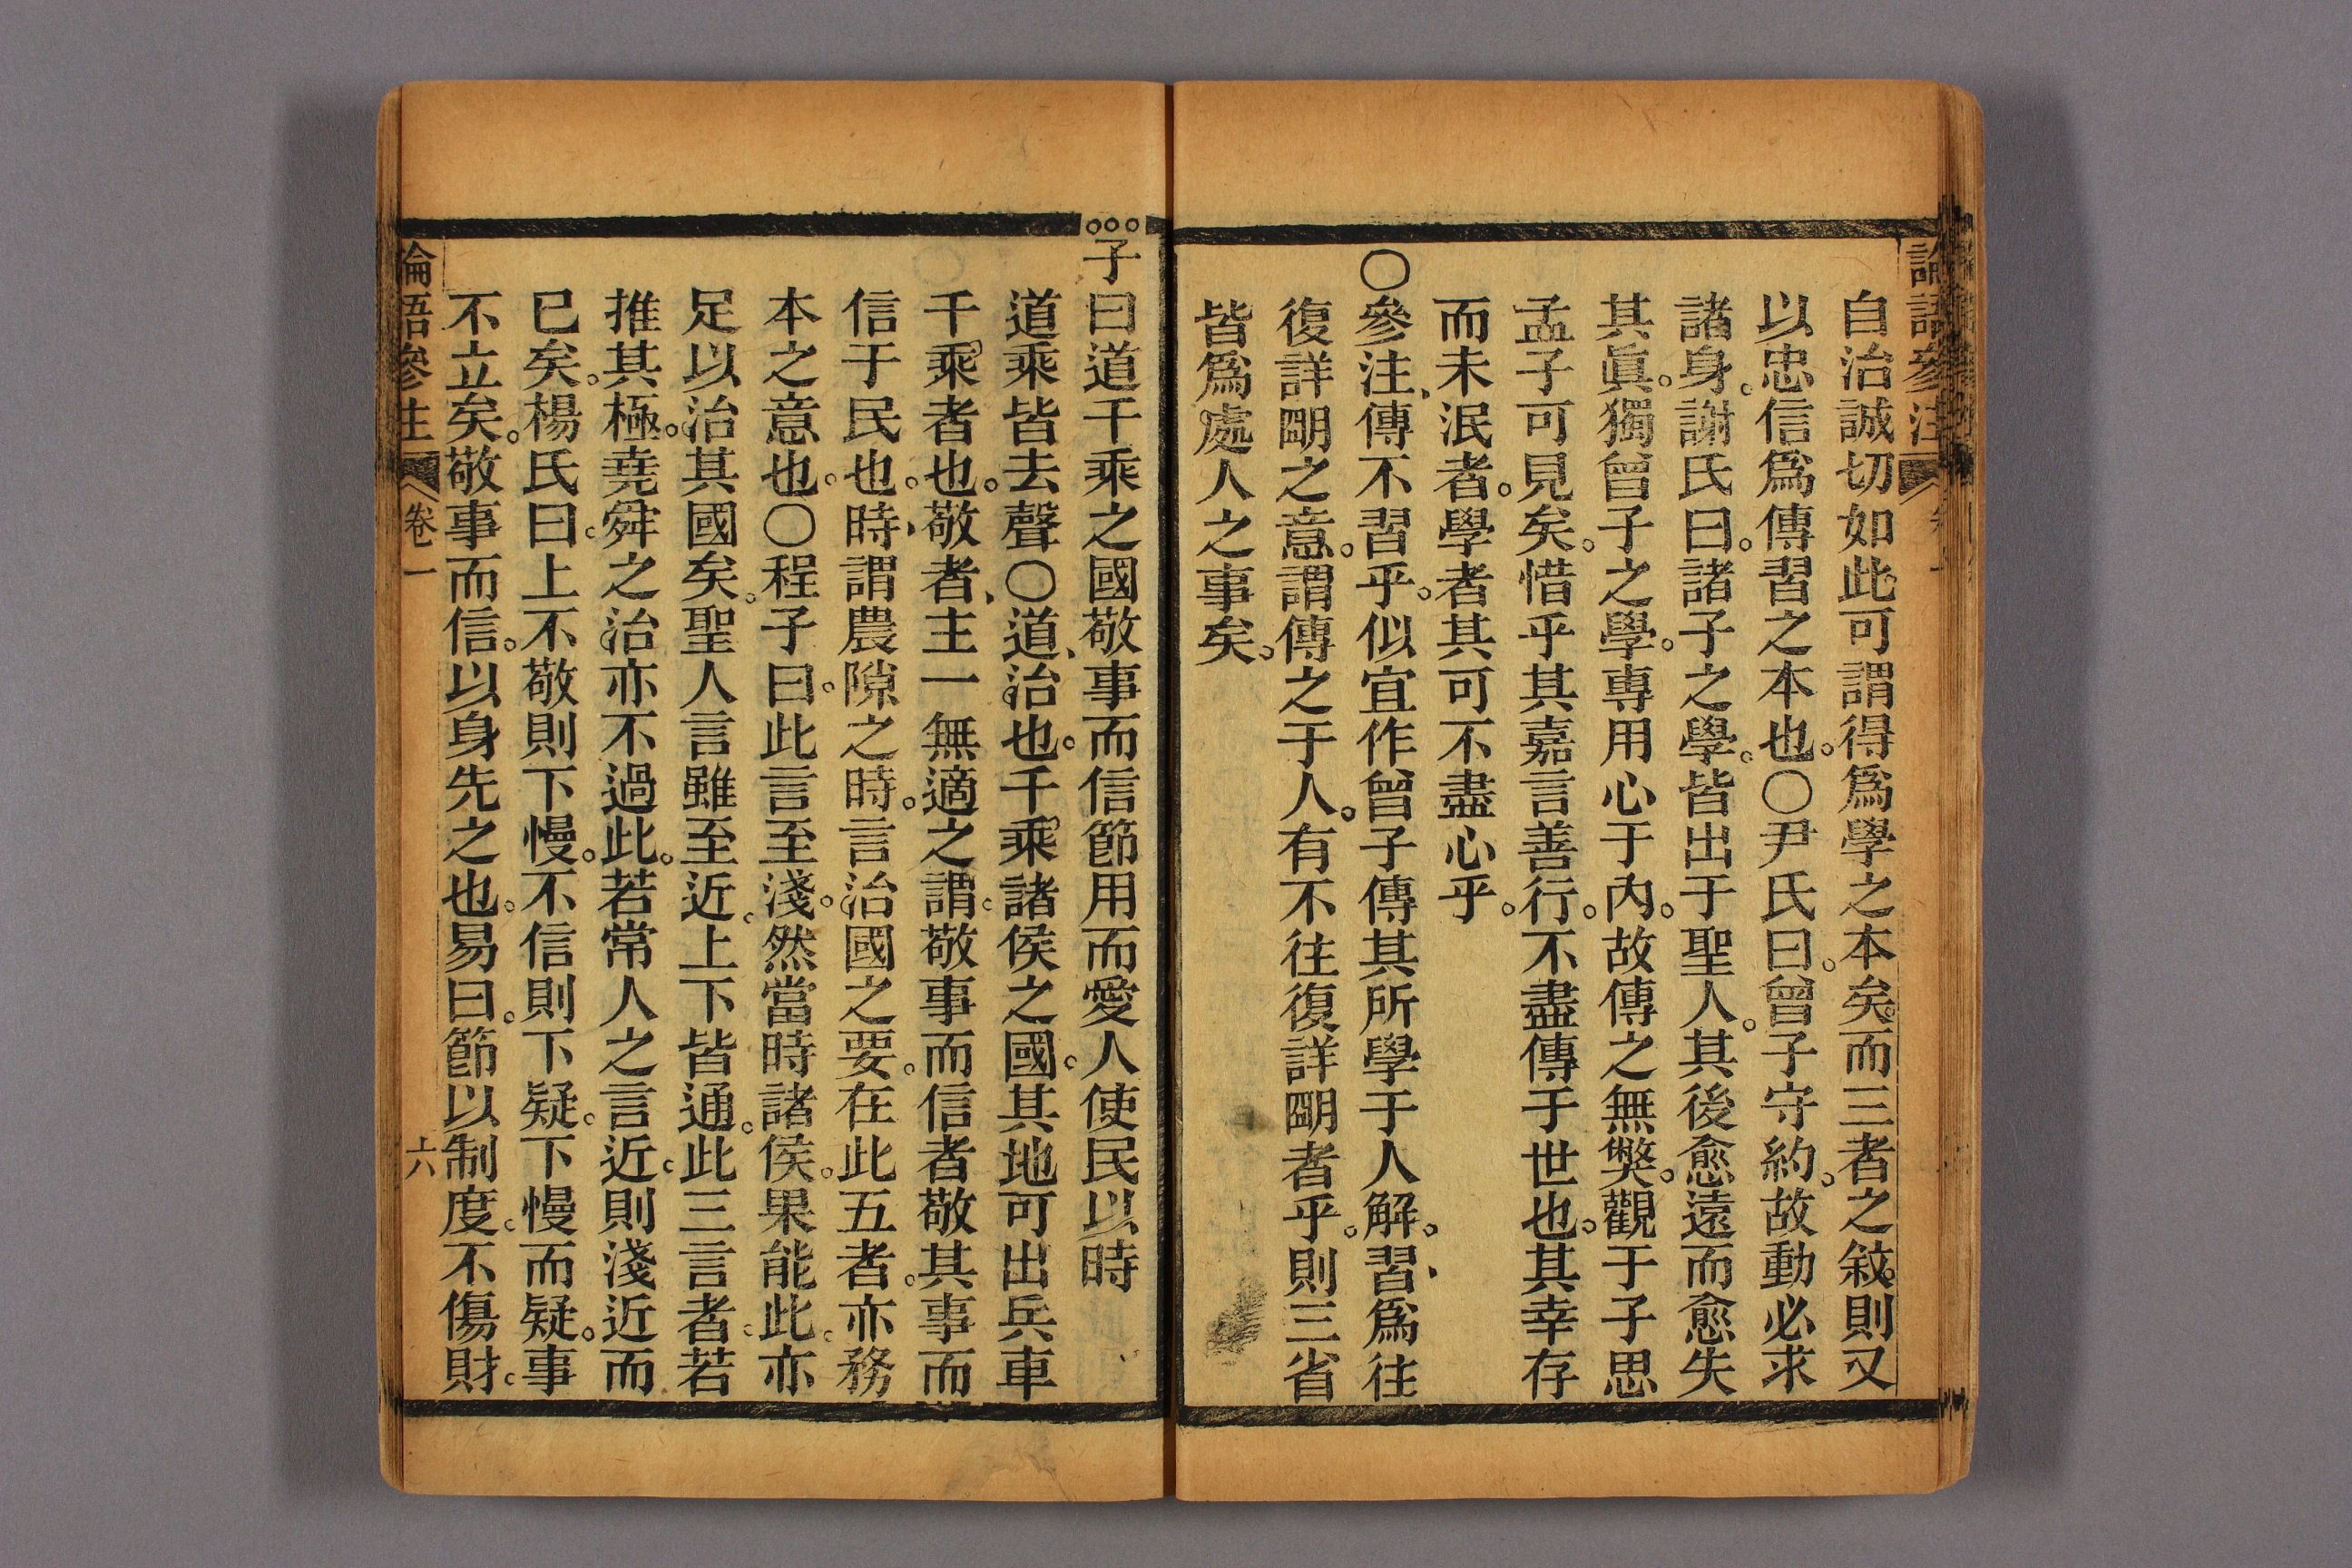 自治誠切如此可謂得爲學之本矣。而三者之敘。則又
以忠信爲傳習之本也。〇尹氏曰。曾子守約。故動必求
諸身。謝氏曰。諸子之學。皆出于聖人。其後愈遠而愈失
其眞。獨曾子之學。專用心于內。故傳之無獘。觀于子思
孟子可見矣。惜乎其嘉言善行。不盡傳于世也。其幸存
而未泯者。學者其可不盡心乎。
〇參注、傳不習乎。似宜作曾子傳其所學于人解。習、爲往
復詳朙之意。謂傳之于人。有不往復詳朙者乎。則三省
皆爲處人之事矣。
子曰道千乘之國敬事而信節用而愛人使民以時
道乘皆去聲〇道、治也。千乘諸侯之國。其地可出兵車
千乘者也。敬者、主一無適之謂。敬事而信者敬其事而
信于民也。時、謂農隙之時。言治國之要。在此五者。亦務
本之意也。〇程子曰。此言至淺。然當時諸侯。果能此。亦
足以治其國矣。聖人言雖至近。上下皆通。此三言者。若
推其極。堯舜之治亦不過此。若常人之言近。則淺近而
已矣。楊氏曰。上不敬則下慢。不信則下疑。下慢而疑。事
不立矣。敬事而信。以身先之也。易曰。節以制度。不傷財。
論語參注 卷一 六